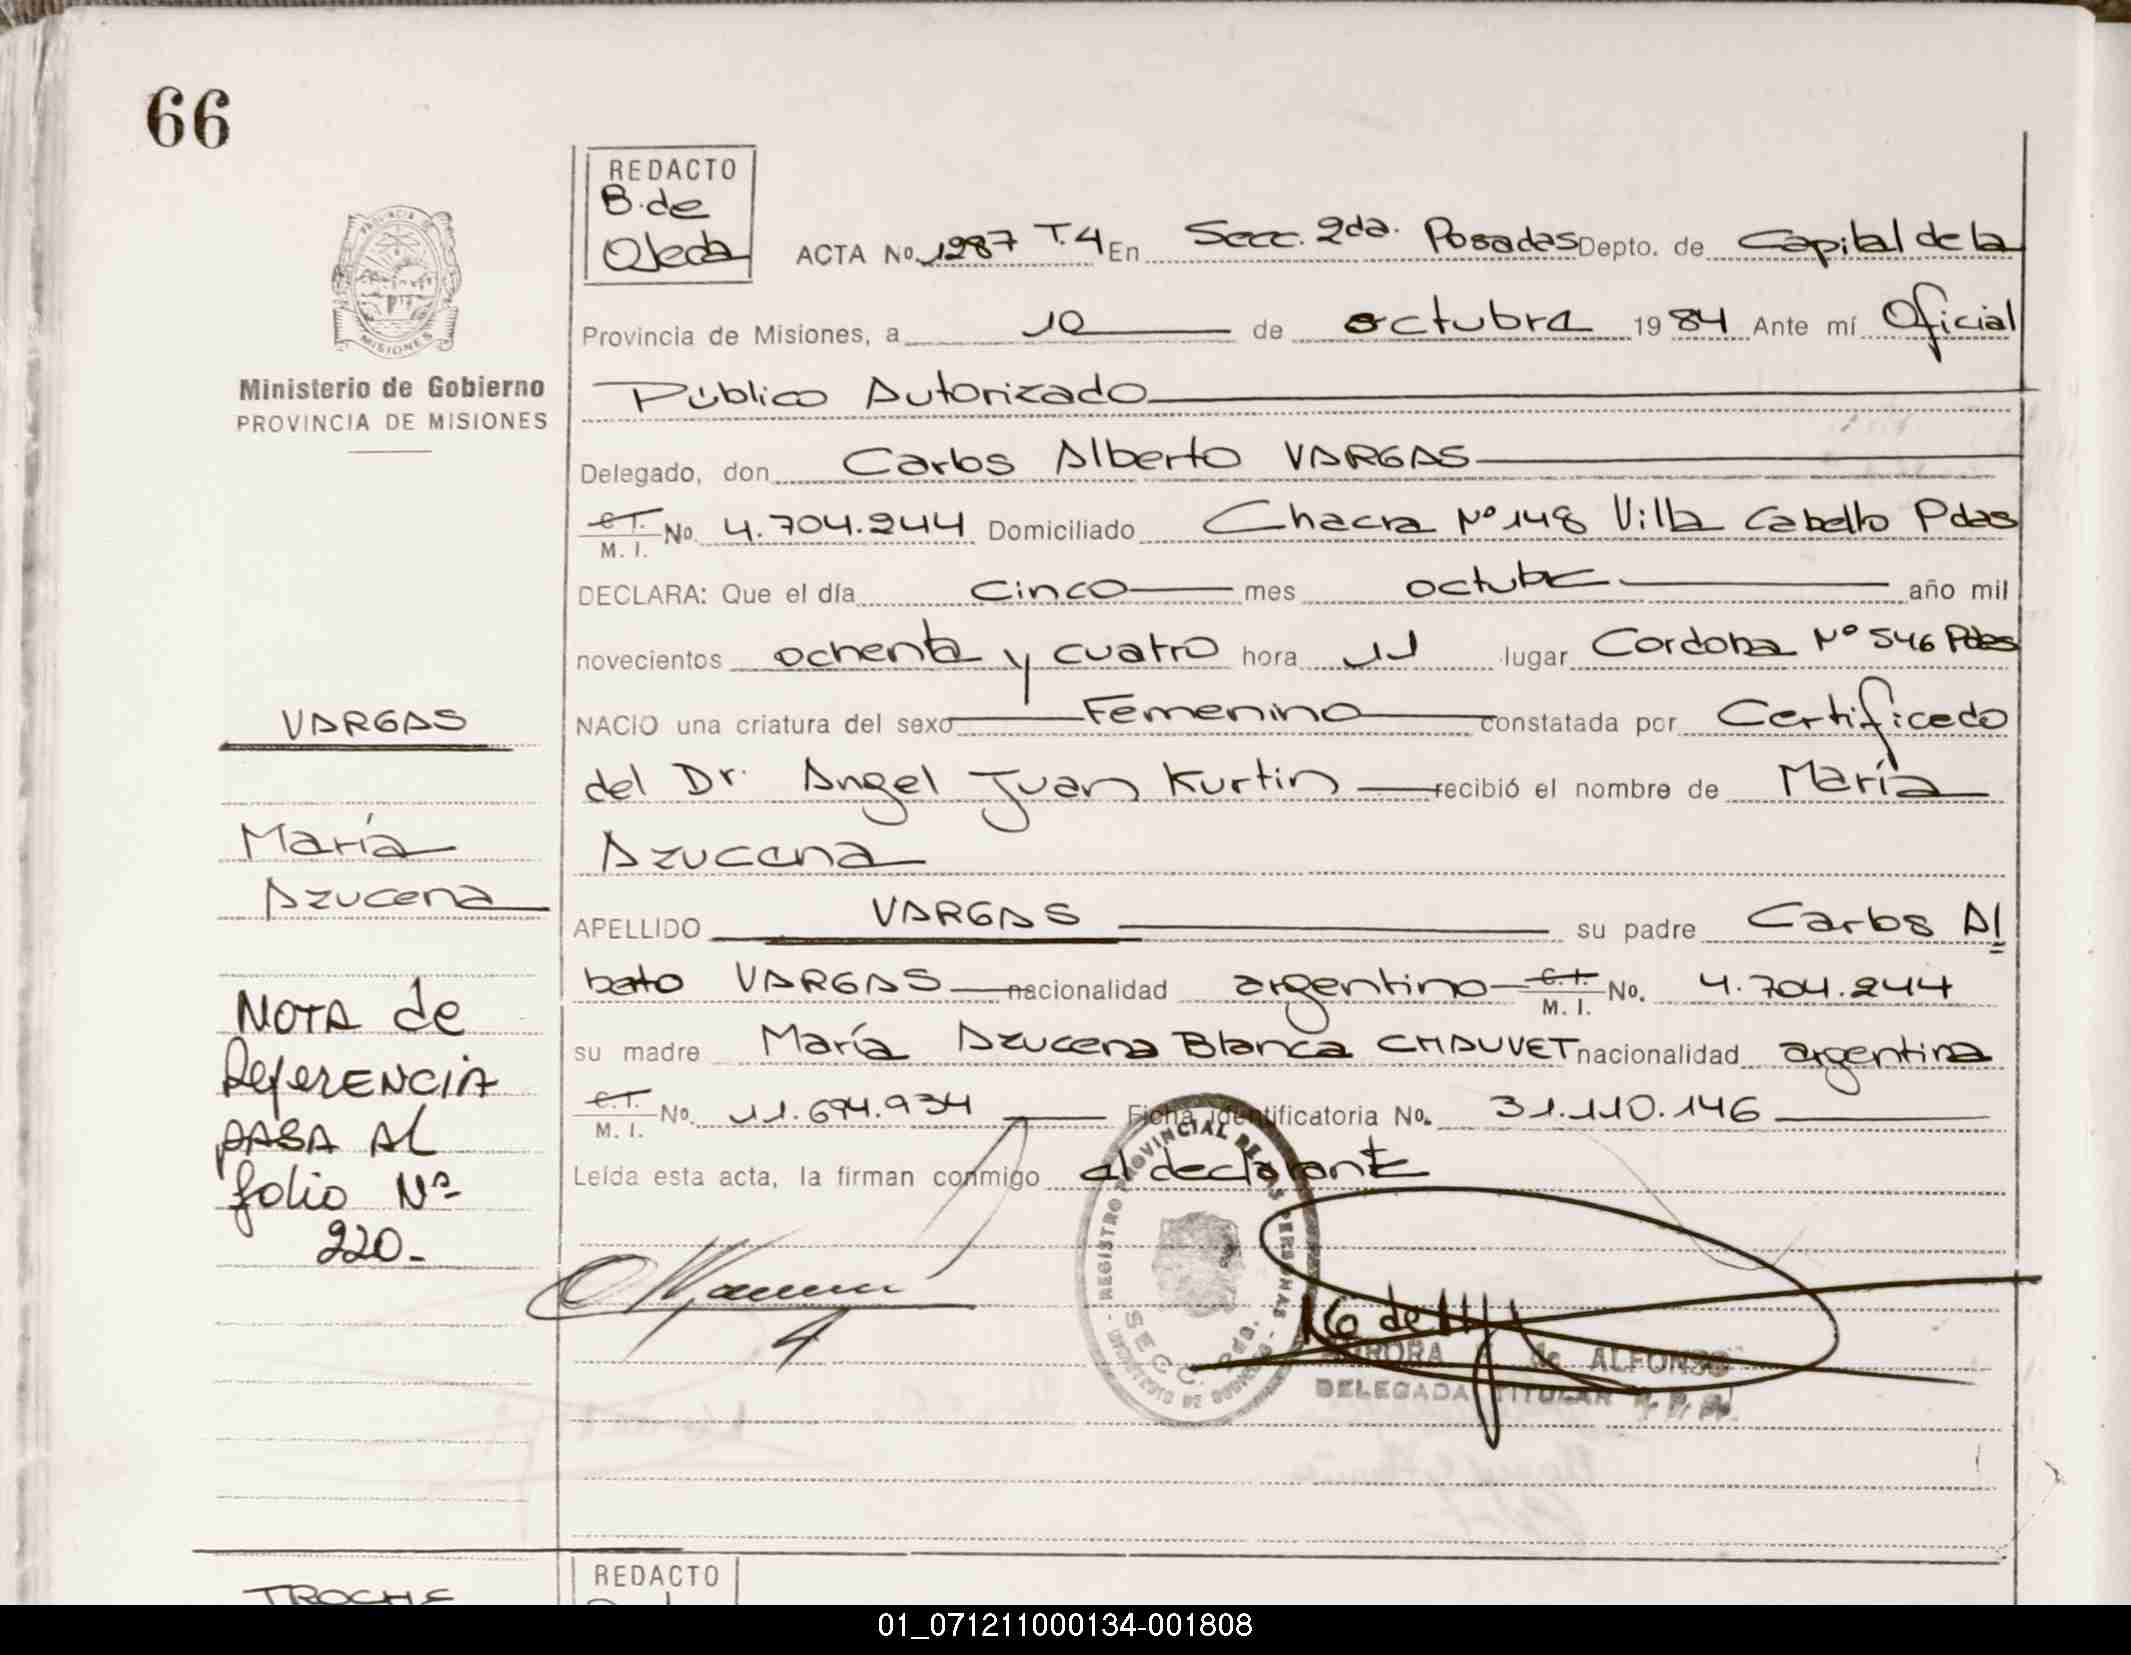 66
REDACTO
B. de
Ojeda
ACTA No. 1287 T.4 En Secc. 2da. Posadas Depto. de Capital de la
Provincia de Misiones, a 10 de octubre 1984 Ante mí Oficial
Público Autorizado
Delegado, don Carlos Alberto VARGAS
C.I. M. I. No. 4.704.244 Domiciliado Chacra Nº 148 Villa Cabello Pdas
DECLARA: Que el día cinco mes octubre año mil
novecientos ochenta y cuatro hora 11 lugar Cordoba Nº 546 Pdas
NACIO una criatura del sexo Femenino constatada por Certificado
del Dr. Angel Juan Kurtin recibió el nombre de María
Azucena
APELLIDO VARGAS su padre Carlos Al
berto VARGAS nacionalidad argentino C.I. M. I. No. 4.704.244
su madre María Azucena Blanca CHAUVET nacionalidad argentina
C.I. M. I. No. 11.694.934 Ficha identificatoria No. 31.110.146
Leída esta acta, la firman conmigo al declarante
PROVINCIA DE
MISIONES
Ministerio de Gobierno
PROVINCIA DE MISIONES
VARGAS
María
Azucena
NOTA de
RefeRENCIA
PASA AL
folio Nº
220-
REGISTRO PROVINCIAL DE LAS PERSONAS
SECC. 2da.
MINISTERIO DE GOBIERNO
AURORA de ALFONSO
DELEGADA TITULAR
TROCHE
REDACTO
01_071211000134-001808